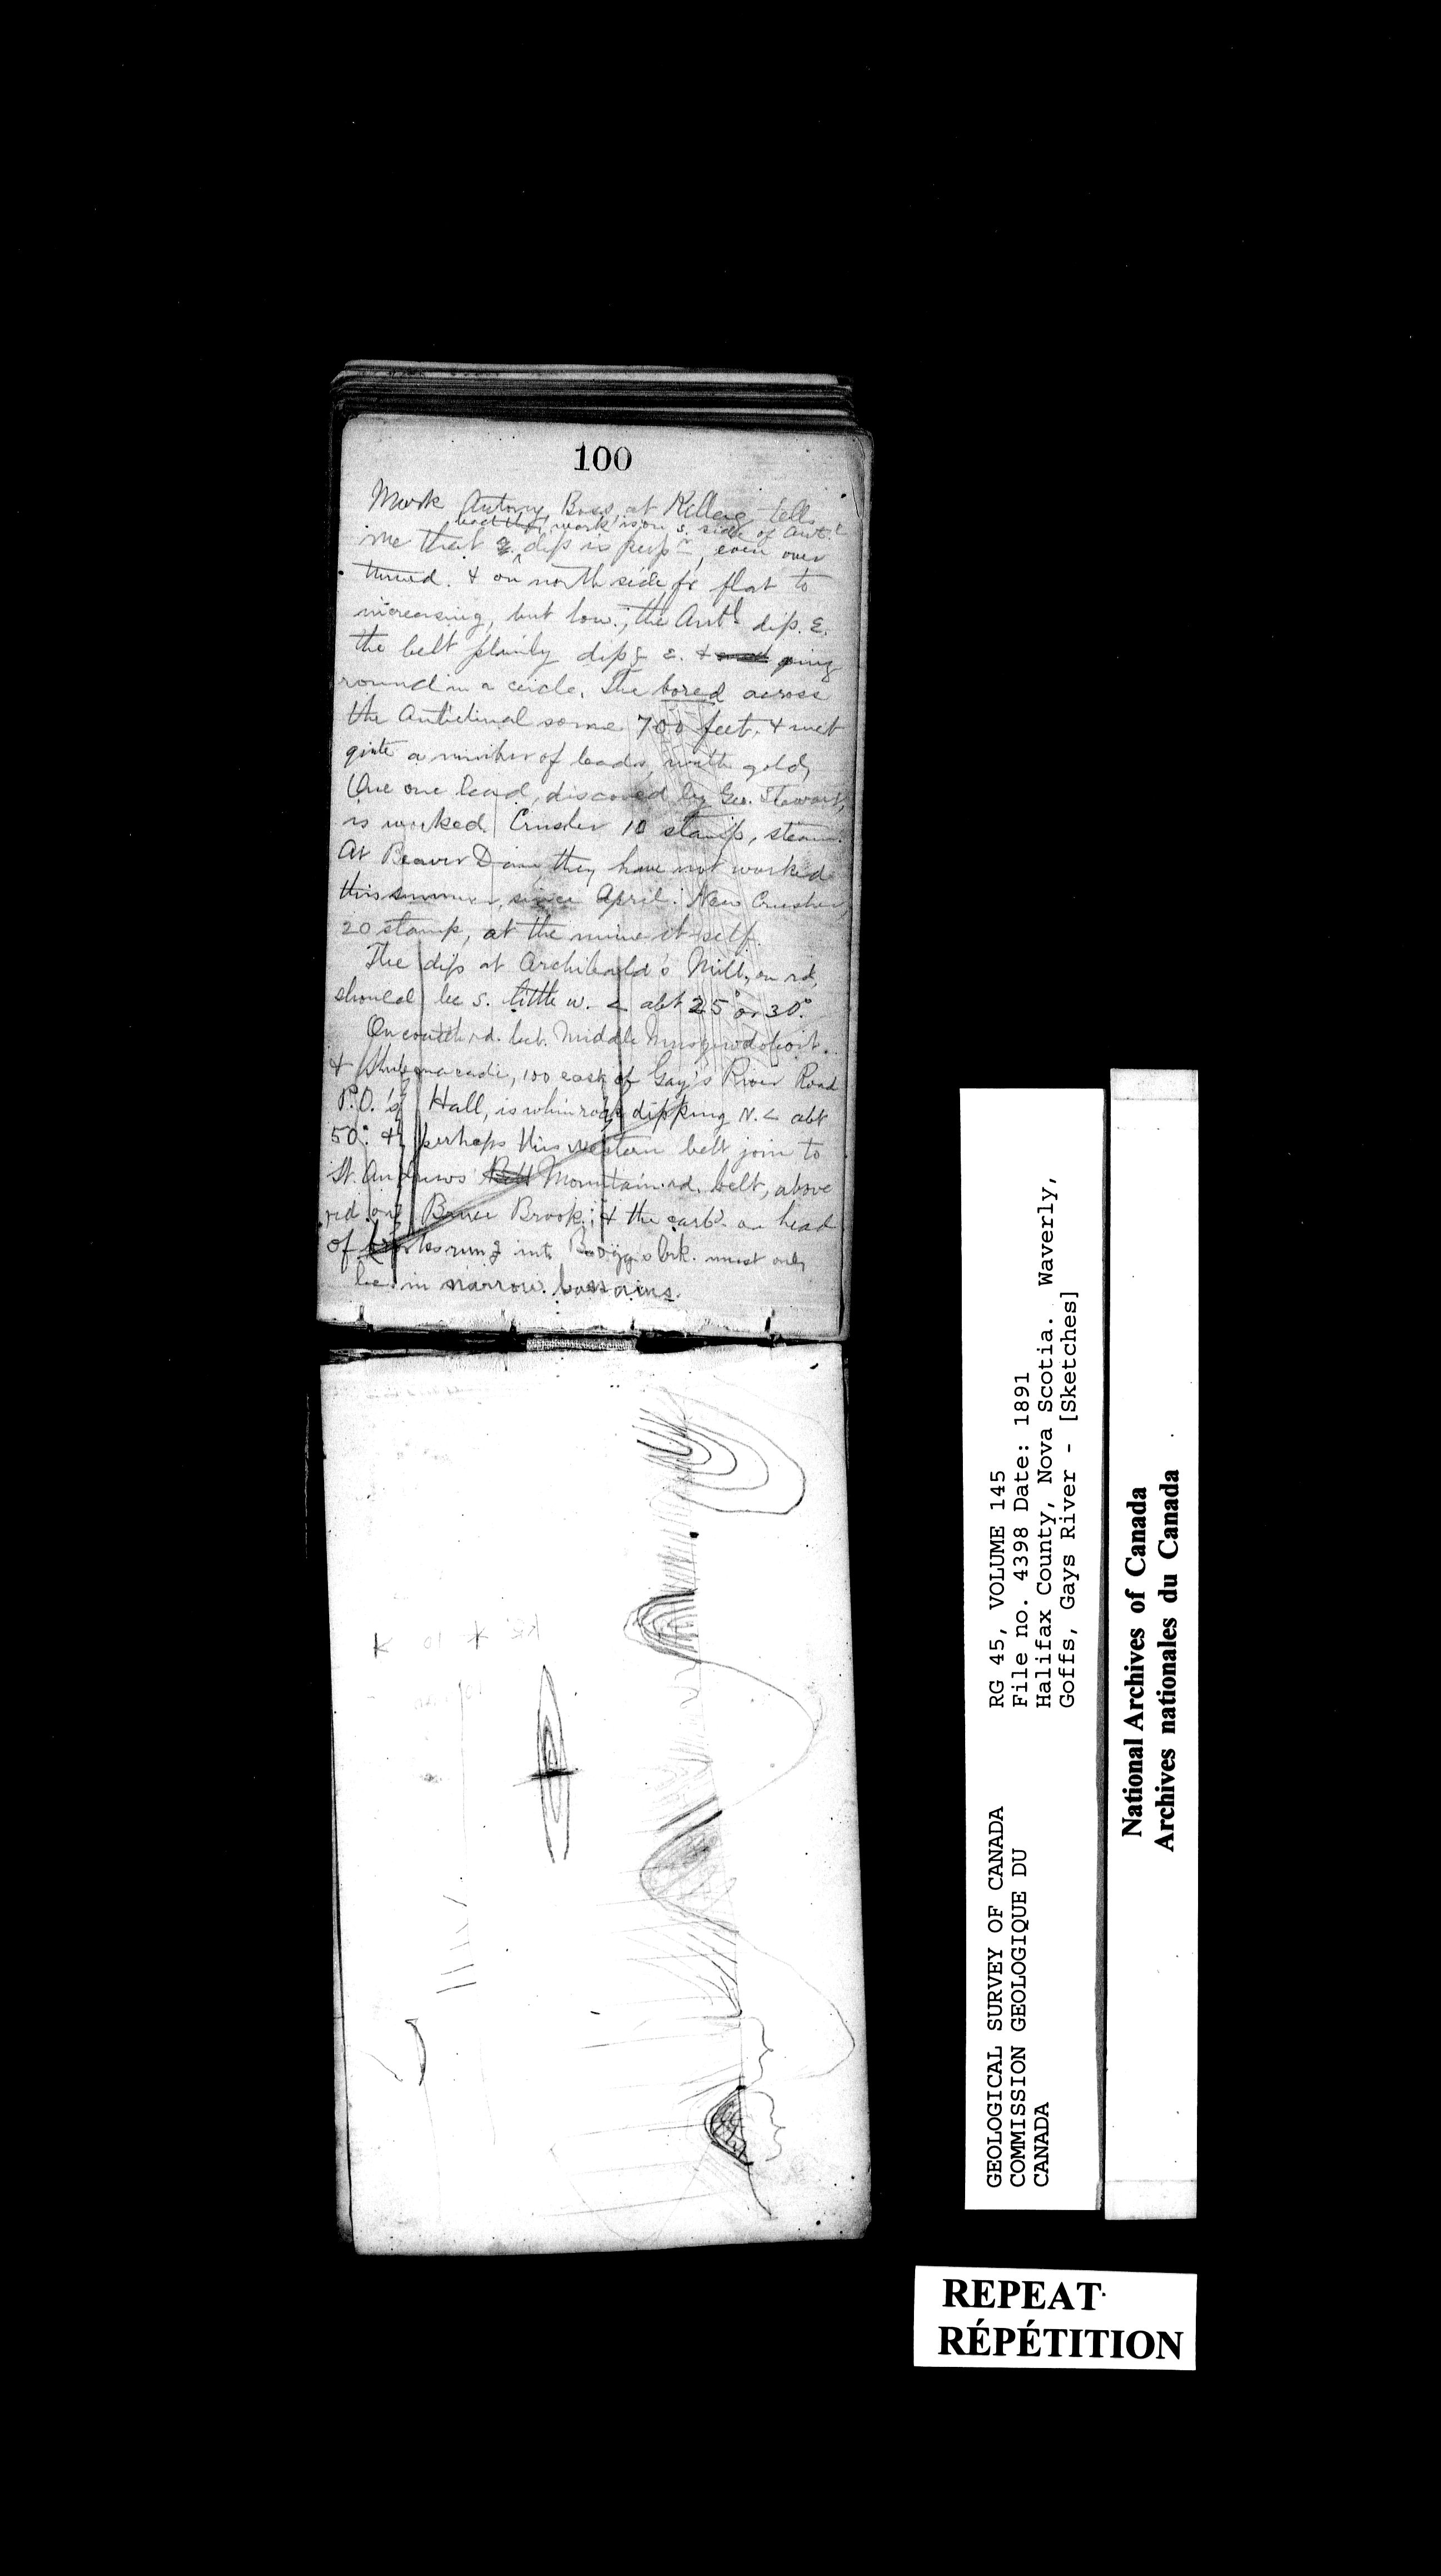 100
Mark Antony, Boss, at Killag tells
work is on s. side of Ant.l
me that dip is perp.r, even over
turned. & on north side fr flat to
increasing, but low; the Ant.l dip. E.
the belt plainly dipg E. & going
round in a circle. The bored across
the Anticlinal some 700 feet, & met
quite a number of leads, with gold,
One one lead, discoved by Geo. Stewart,
is worked. Crusher 10 stamp, steam.
At Beaver Dam, they have not worked
this summer, since April. New Crusher
20 stamp, at the mine it-self.
The dip at Archibald's Mill, on rd,
should be s. little w. < abt 25° or 30°.
On south rd. bet. Middle Musquodoboit
& Shubenacadie, 100 east of Gay's River Road
P.O. Hall, is whin rock dipping N. < abt
50°. & perhaps this western belt join to
St. Andrews Mountain rd. belt, above
rd. on Brook; & the carb. on head
of brooks rung into brk. must only
be in narrow bassains.
GEOLOGICAL SURVEY OF CANADA
COMMISSION GEOLOGIQUE DU
CANADA
RG 45, VOLUME 145
File no. 4398 Date: 1891
Halifax County, Nova Scotia. Waverly,
Goffs, Gays River - [Sketches]
National Archives of Canada
Archives nationales du Canada
REPEAT
RÉPÉTITION